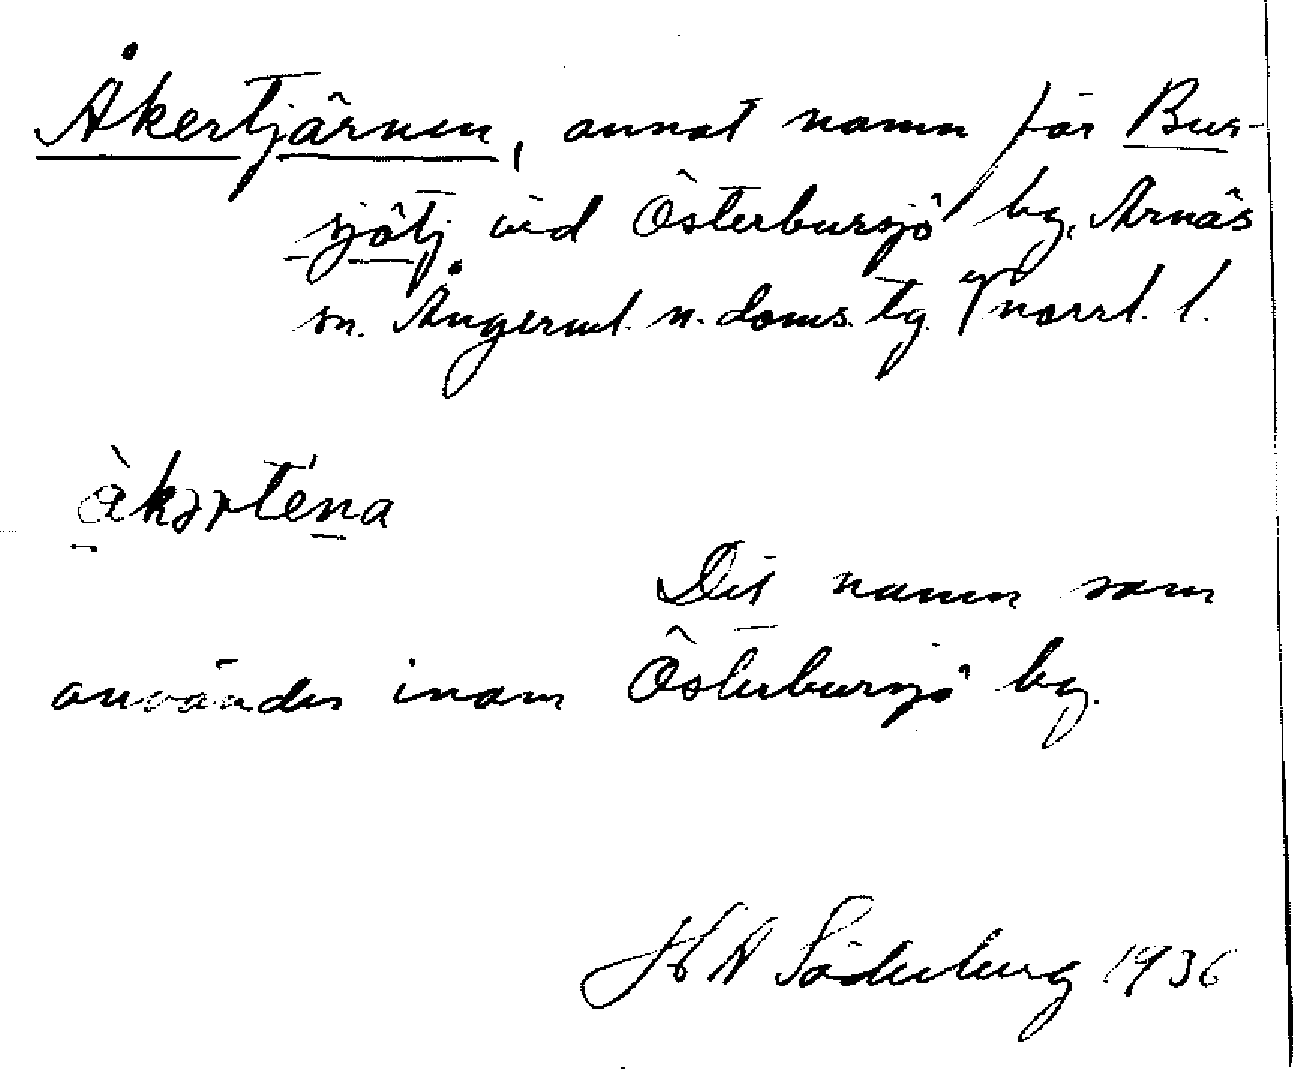 Åkertjärnen, annat namn för Bur-
sjötj vid Österbursjö by, Arnäs
sn. Ångerml. n. doms. tg. Vnorrl. l.
åkərtέn̥a
Det namn som
användes inom Österbursjö by.
H A Söderberg 1936